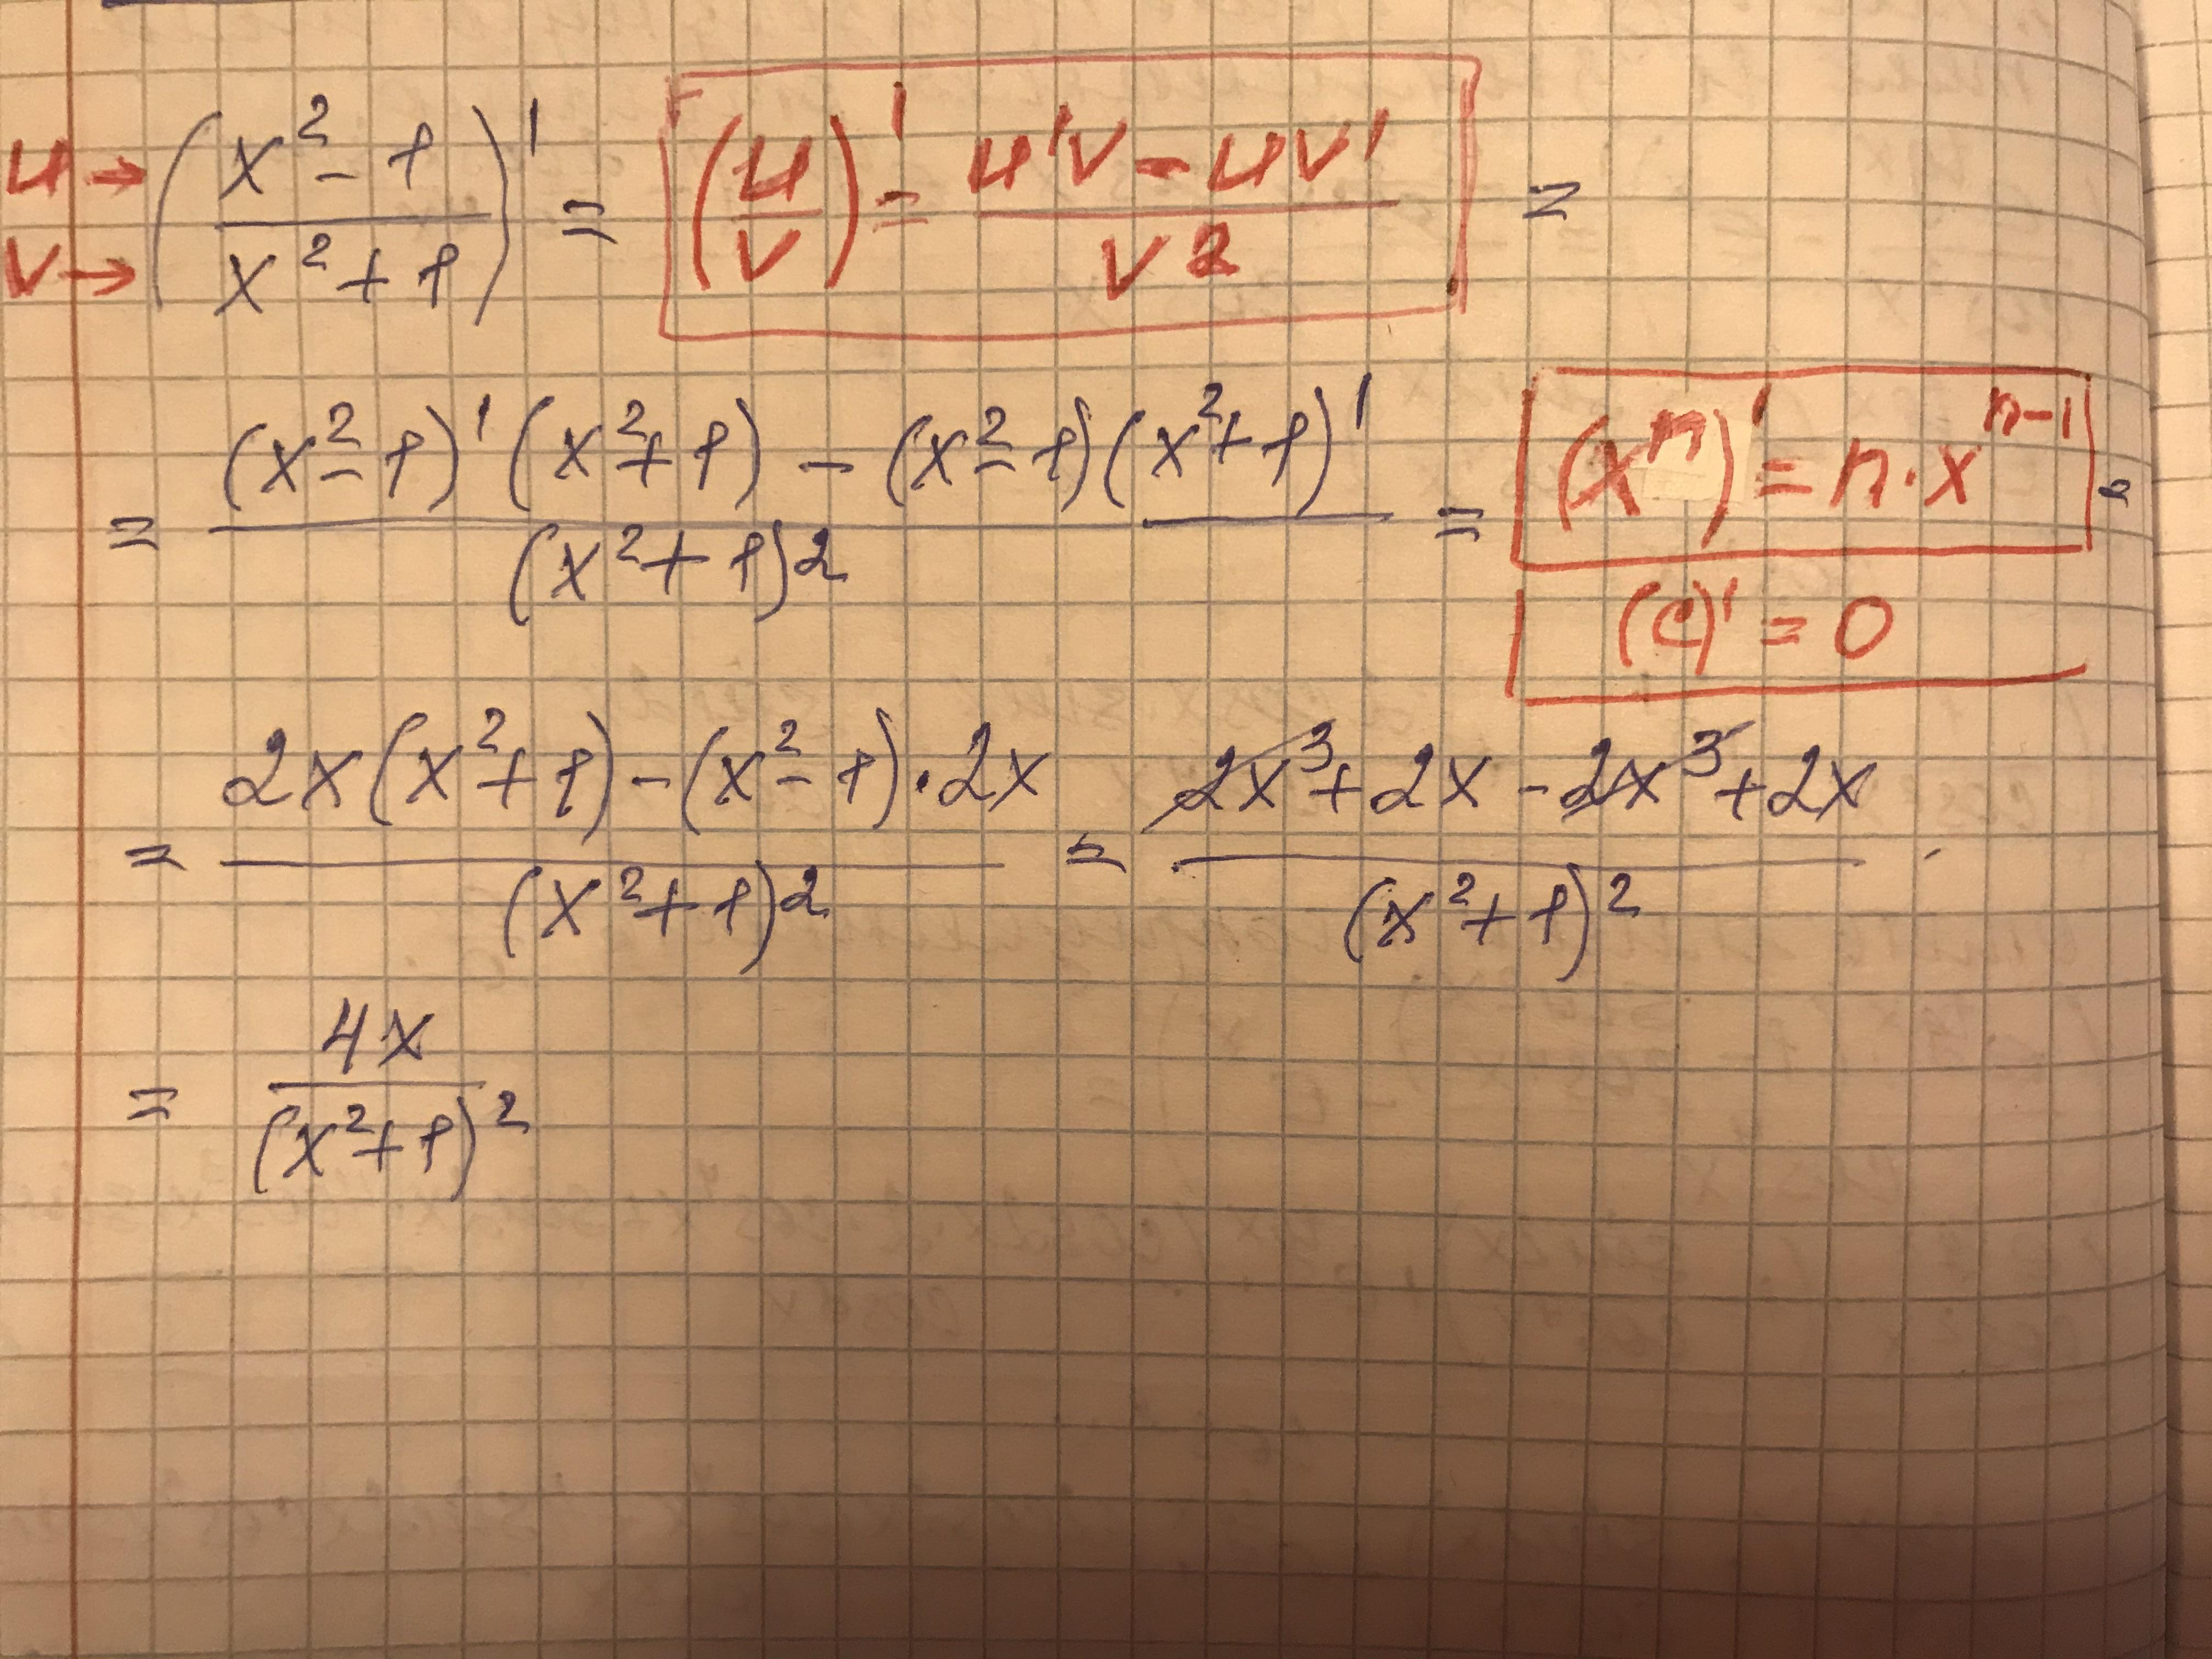 u → (x² - 1 / x² + 1)' = (u/v)' = u'v - uv' / v² =
v →
= (x² - 1)'(x² + 1) - (x² - 1)(x² + 1)' / (x² + 1)² = (xⁿ)' = n · xⁿ⁻¹ =
(c)' = 0
= 2x(x² + 1) - (x² - 1) · 2x / (x² + 1)² = 2x³ + 2x - 2x³ + 2x / (x² + 1)²
= 4x / (x² + 1)²